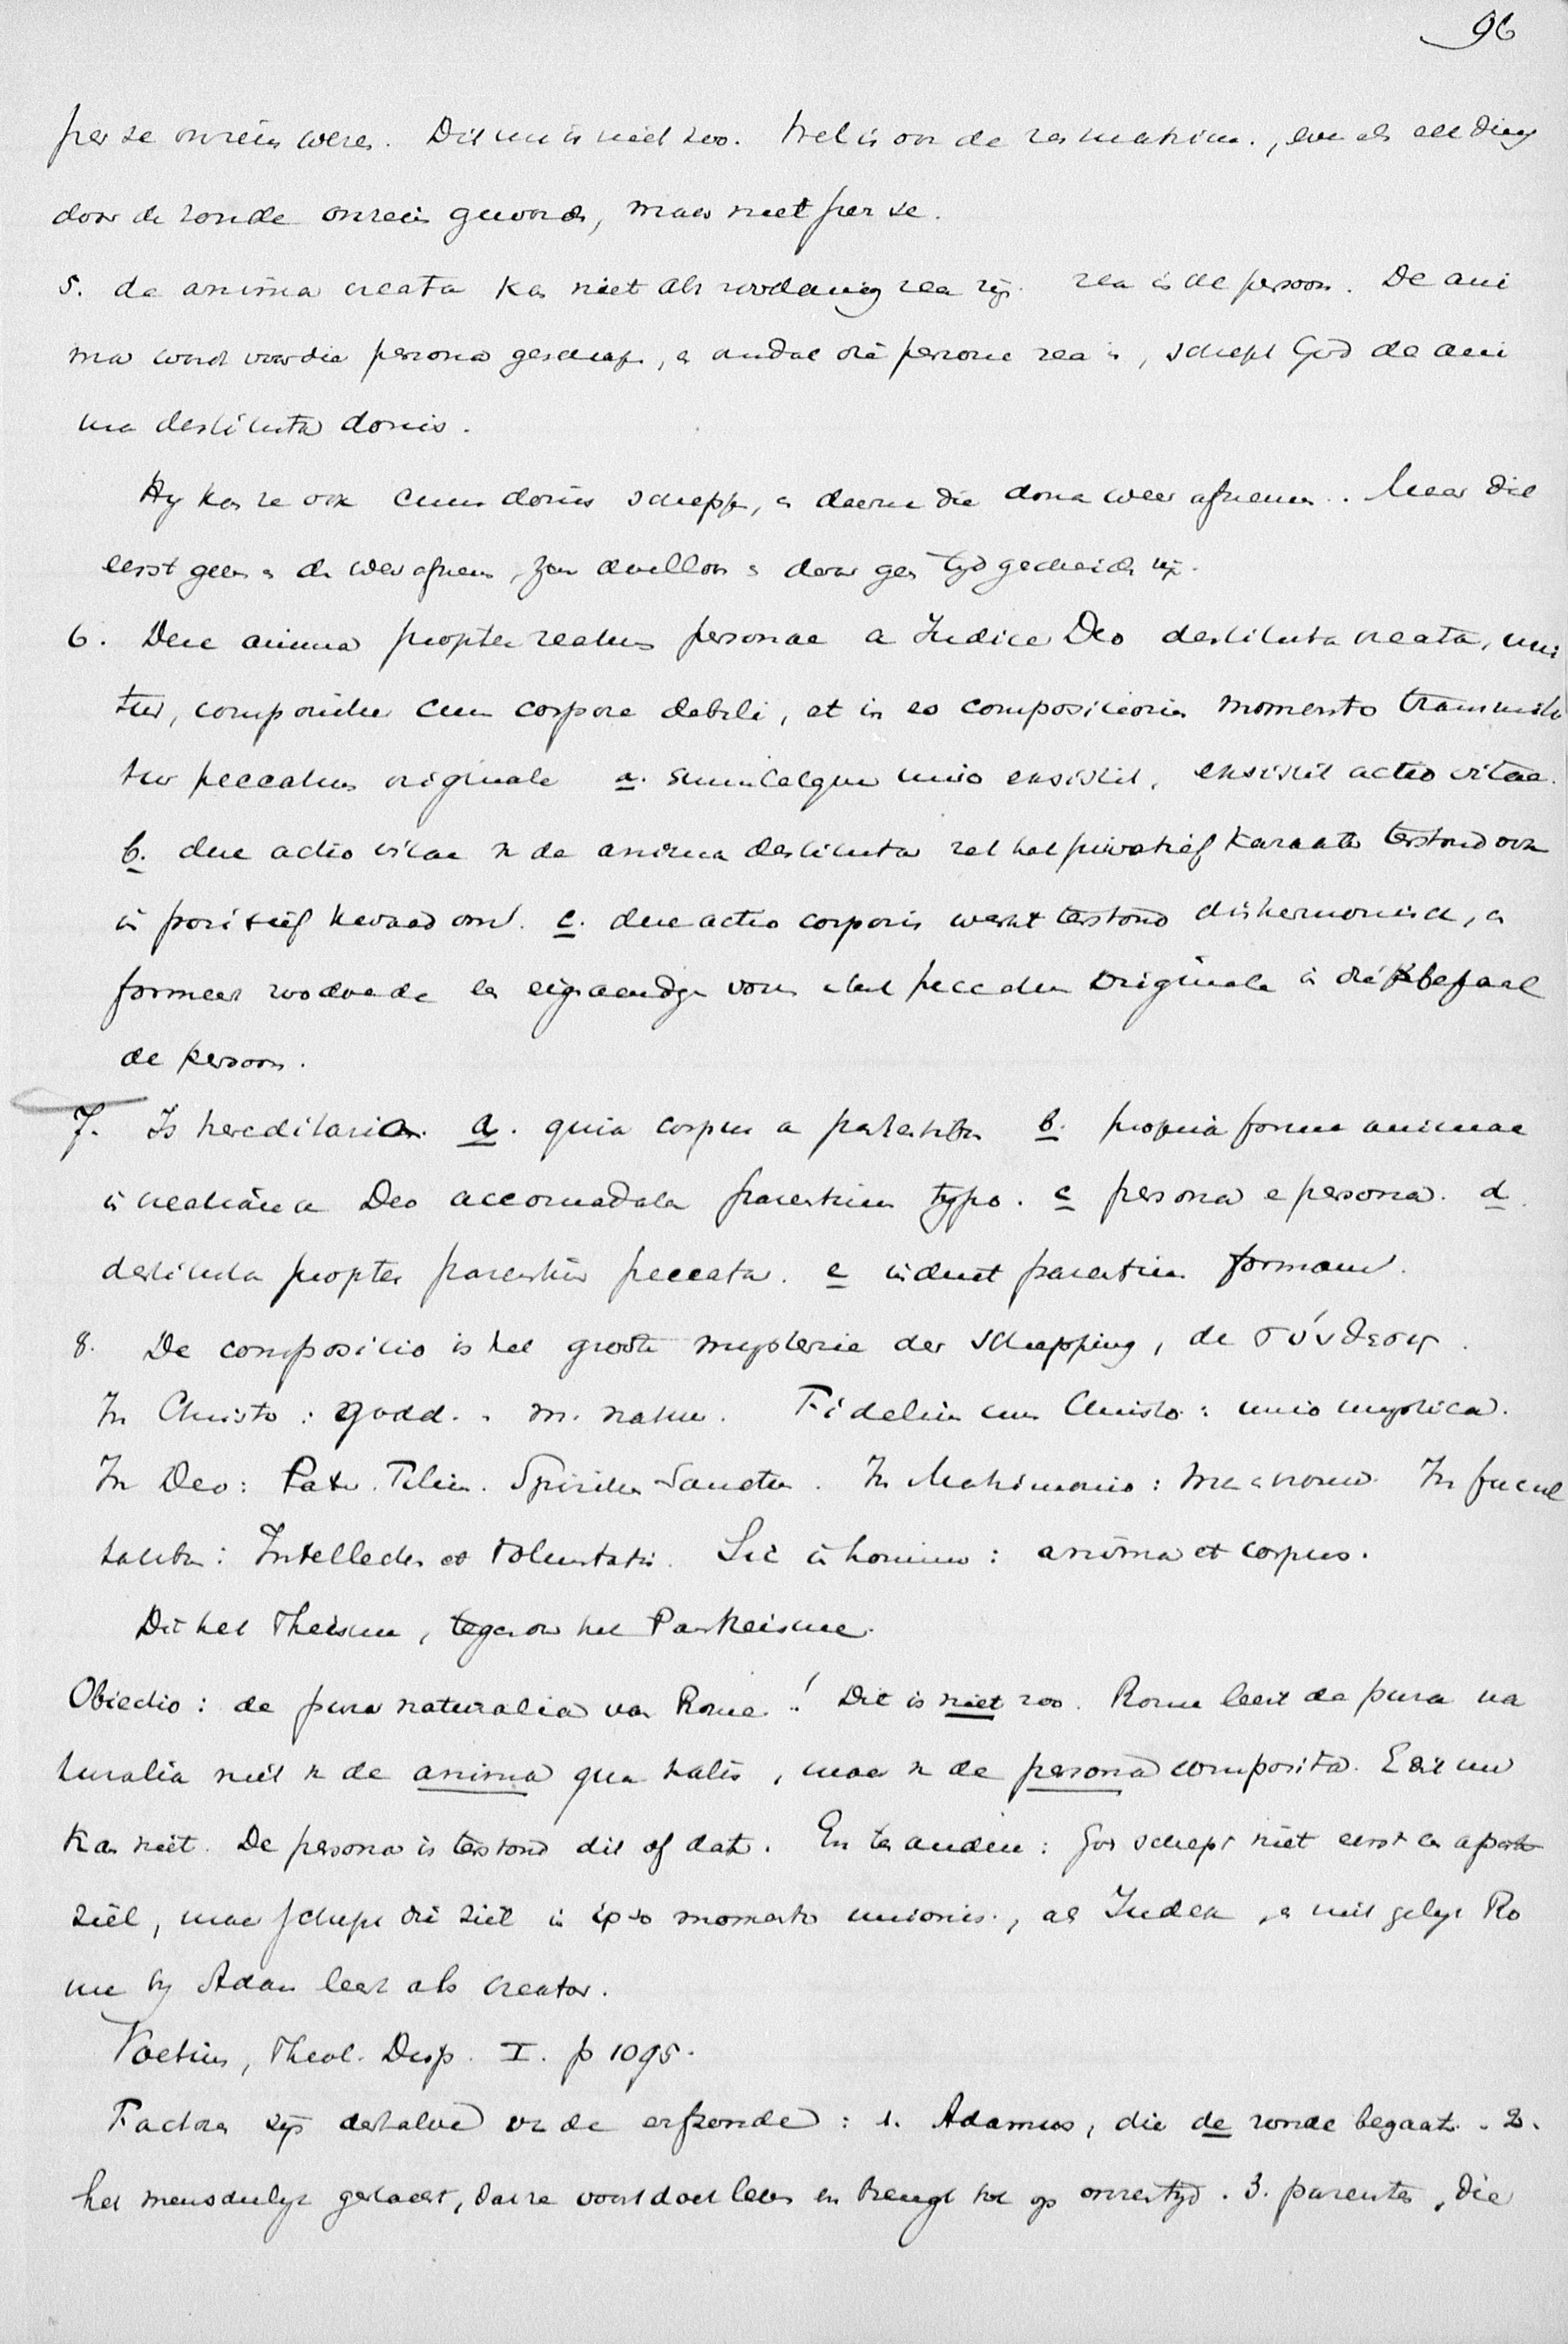 96
per se onrein were. Dit nu is niet zoo. Wel is ook de res matrim., even als alle ding
door de zonde onrein geword, maar niet per se.
5. de anima creata kan niet als zoodanig rea zijn. rea is de persoon. De ani
ma word voor die persona geschap, en omdat die persona rea is, schept God de ani
ma destituta donis.
Hy kan ze ook cum donis schepp, en daarna die dona weer afnemen. Maar die
eerst geven en dan weer afnem, zou doelloos en door geen tyd gescheid zijn.
6. Deze anima propter reatum personae a Judice Deo destituta creata, uni
tur, componitur cum corpore debili, et in eo compositionis momento transmitti
tur peccatum originale a. simulatque unio existit, existit actio vitae.
b. deze actio vitae in de anima destituta zet het privatief karakter terstond ook
in positief kwaad om. c. deze actio corporis werkt terstond disharmonisch, en
formeert zoodoende een eigenaardige vorm van het peccatum originale in die bepaal
de persoon.
7. Is hereditaria. a. quia corpus a parentibus b. propria forma animae
in creatione a Deo accomodata parentum typo. c persona e persona. d.
destituta propter parentum peccata. e induit parentum formam.
8. De compositio is het groote mysterie der schepping, de σύνθεσις.
In Christo: godd. en m. natuur. Fidelium cum Christo: unio mystica.
In Deo: Pater. Filius. Spiritus Sanctus. In Matrimonio: man en vrouw. In facul
tatibus: Intellectus et Voluntatis. Sic in homine: anima et corpus.
Dit het Theisme, tegenov het Pantheisme.
Obiectio: de pura naturalia van Rome! Dit is niet zoo. Rome leert de pura na
turalia niet in de anima qua talis, maar in de persona composita. En dit nu
kan niet. De persona is terstond dit of dat. En ten andere: God schept niet eerst een aparte
ziel, maar schept die ziel in ipso momento unionis, als Judex, en niet gelijk Ro
me by Adam leert als creator.
Voetius, Theol. Disp. I. p 1095.
Factoren zijn derhalve van de erfzonde: 1. Adamus, die de zonde begaat. 2.
het menschelijk geslacht, dat ze voort doet leven en brengt tot op onzen tyd. 3. parentes, die